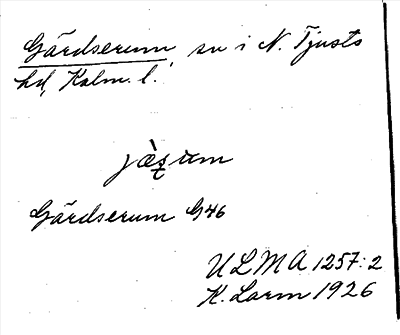 Gärdserum, sn i N. Tjusts
hd, Kalm. l.
jæ̀ʂum
Gärdserum G46
ULMA 1257:2
K. Larm 1926